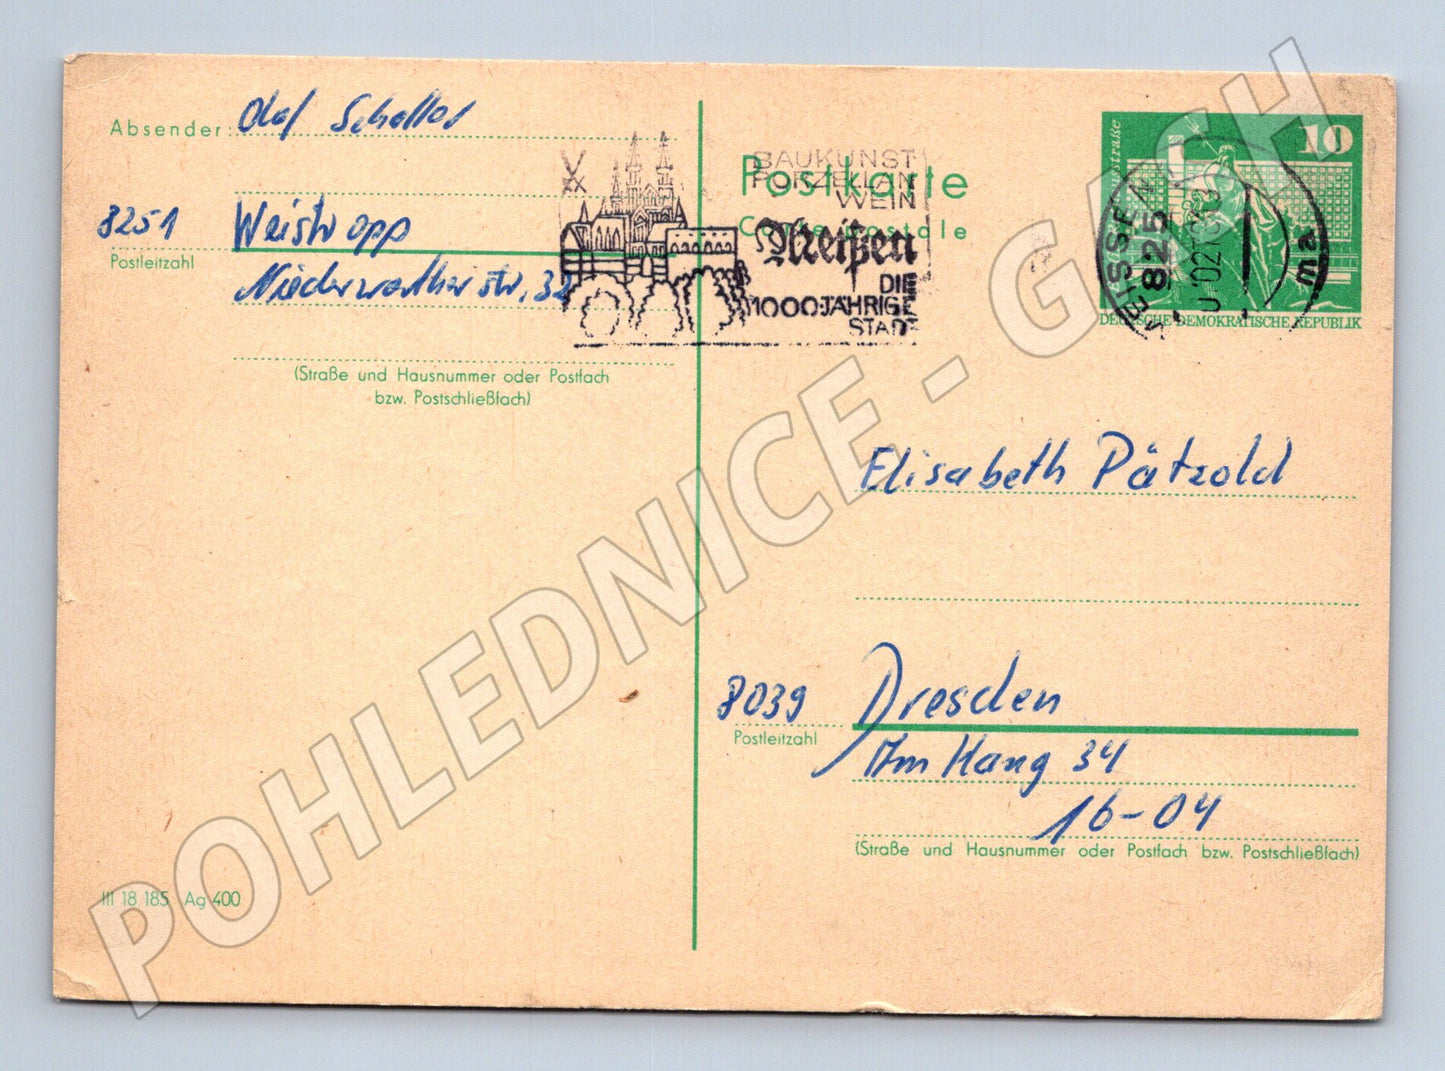 Absender: Olaf Schaller
8251 Weistropp
Postleitzahl
Niederwarthaer str. 32
(Straße und Hausnummer oder Postfach
bzw. Postschließfach)
III 18 185 Ag 400
BAUKUNST
PORZELLAN
WEIN
Meißen
DIE
1000JÄHRIGE
STADT
Postkarte
Carte postale
straße
10
825
ma
DEUTSCHE DEMOKRATISCHE REPUBLIK
Elisabeth Pätzold
8039 Dresden
Postleitzahl
Am Hang 34
16-04
(Straße und Hausnummer oder Postfach bzw. Postschließfach)
POHLEDNICE - GASH